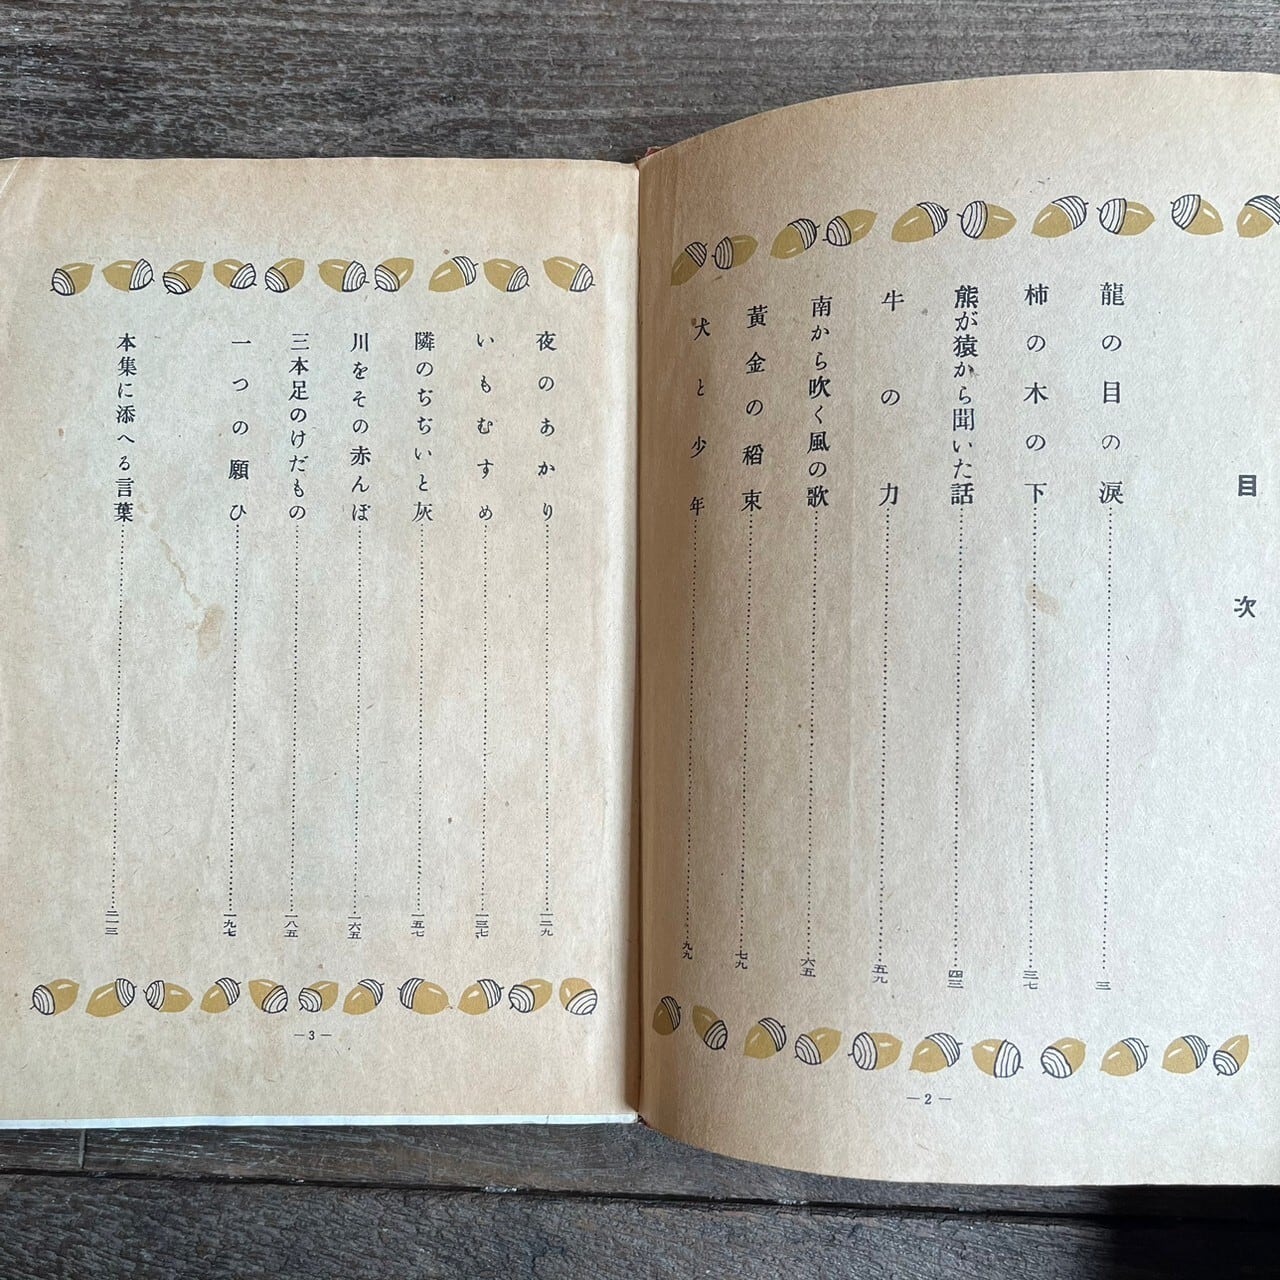 目次
龍の目の涙……三
柿の木の下……三七
熊が猿から聞いた話……四三
牛の力……五九
南から吹く風の歌……六五
黄金の稲束……七九
犬と少年……九九
—2—
夜のあかり……一二九
いもむすめ……一三七
隣のぢぢいと灰……一五七
川をその赤んぼ……一六五
三本足のけだもの……一八五
一つの願ひ……一九七
本集に添へる言葉……二一三
—3—